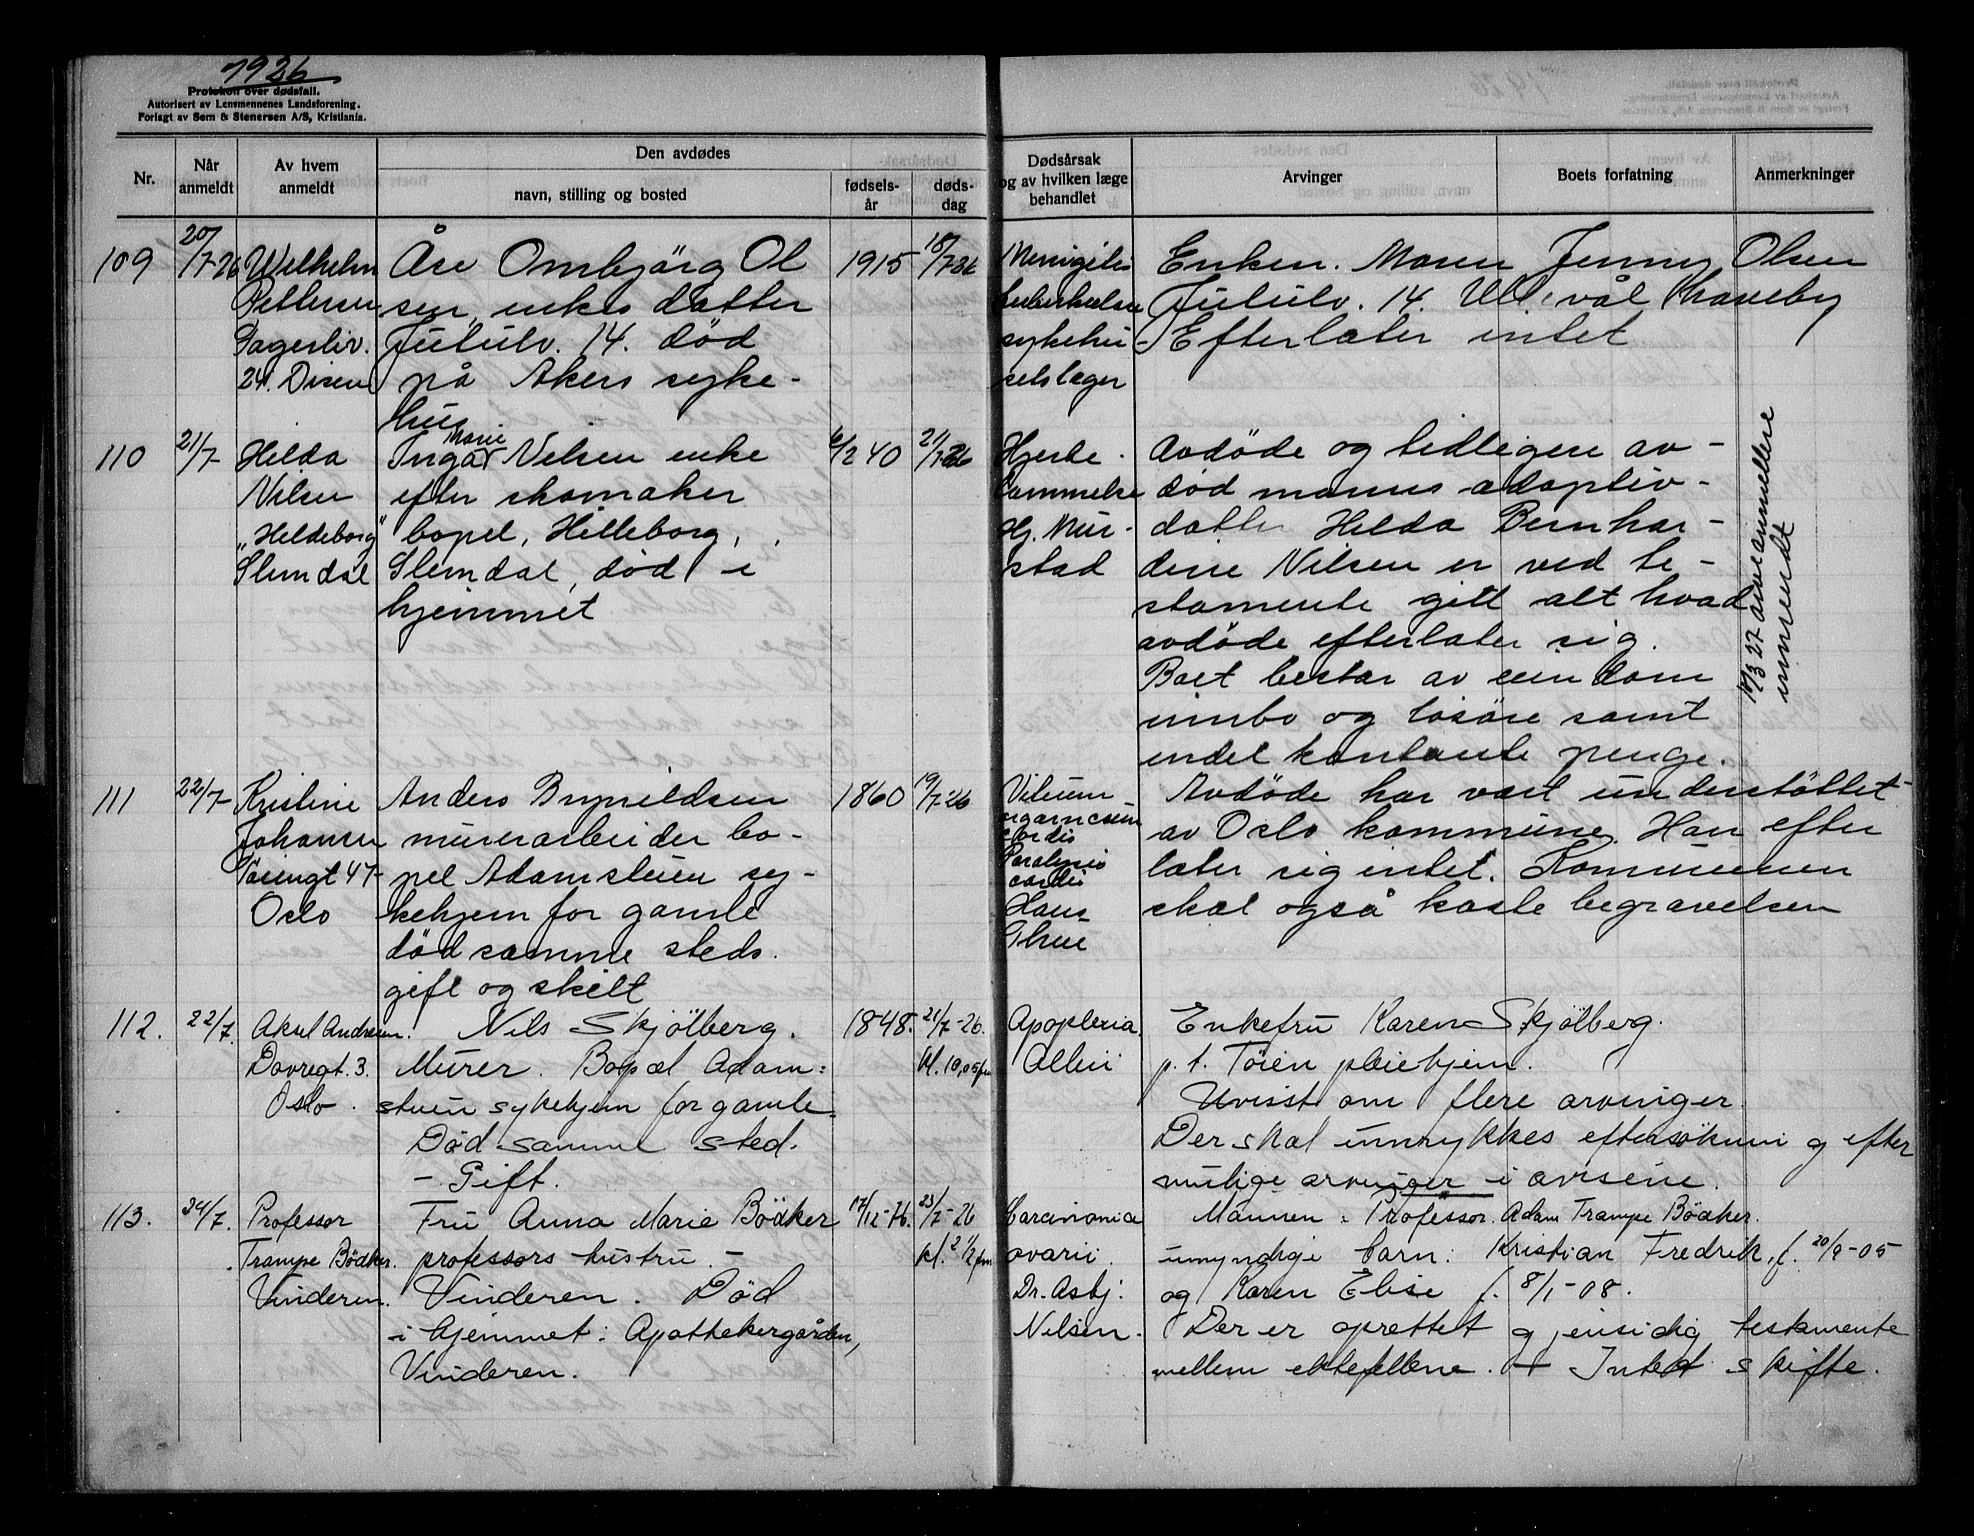 1926
Protokoll over dødsfall.
Autorisert av Lensmennenes Landsforening.
Forlagt av Sem & Stenersen A/S, Kristiania.
Nr.
Når anmeldt
Av hvem anmeldt
Den avdødes
navn, stilling og bosted
fødsels-år
døds-dag
Dødsårsak og av hvilken læge behandlet
Arvinger
Boets forfatning
Anmerkninger
109
20/7-26
Wilhelm
Pettersen
Fagerliv.
24. Disen
Åse Ombjörg Ol
sen, enkes datter
Jutulv. 14. död
på Akers syke-
hus
1915
18/7-26
Menigitis
tuberkulose
sykehu
selslæger
Enken. Maren Jenny Olsen
Jutulv. 14. Ullevål Haveby
Efterlater intet
110
21/7-
Hilda
Nilsen
"Heldeborg"
Slemdal
Inga Marie Nilsen enke
efter skomaker
bopel, Hilleborg,
Slemdal, död i
hjemmet
6/2 40
21/7-26
Hjerte
lammelse
Hj. Mur-
stad
Avdöde og tidligere av-
död manns adoptiv-
datter Hilda Bernhar-
dine Nilsen er ved te-
stamente gitt alt hvad
avdöde efterlater sig.
Boet bestar av eiendom
innbo og lösöre samt
endel kontante penge.
10/3 27 arveanmeldelse
innsendt
111
22/7-
Kristine
Johansen
Töiengt 47
Oslo
Anders Brynildsen
murerarbeider bo-
pel Adamstuen sy-
kehjem for gamle
död samme steds.
gift og skilt
1860
19/7-26
Vitium
organicum
cordis
Paralysis
cordis
Hans
Thue
Avdöde har vært understöttet
av Oslo kommune. Han efter
later sig intet. Kommunen
skal også koste begravelsen
112.
22/7.
Aksel Andresen.
Dovregt. 3.
Oslo.
Nils Skjölberg.
Murer. Bopæl Adam=
stuen sykehjem for gamle.
Död samme sted.
- Gift.
1848.
21/7-26.
kl. 10,05 fm
Apoplexia
Enkefru Karen Skjölberg.
p.t. Töien pleiehjem.
Uvisst om flere arvinger.
Der skal innrykkes eftersökning efter
mulige arvinger i avisene.
113.
24/7.
Professor
Trampe Bödker.
Vinderen.
Fru Anna Marie Bödker
professors hustru. -
Vinderen. Död
i hjemmet: Apothekergården,
Vinderen.
17/12-76.
23/7-26
kl. 2 1/2 fm
Carcinomia
ovarii.
Dr. Asbj:
Nilsen.
Mannen: Professor. Adam Trampe Bödker.
umyndige barn: Kristian Fredrik, f. 20/9-05
og Karen Elise f. 8/1-08.
Der er oprettet gjensidig testamente
mellem ektefellene. + Intet skifte.